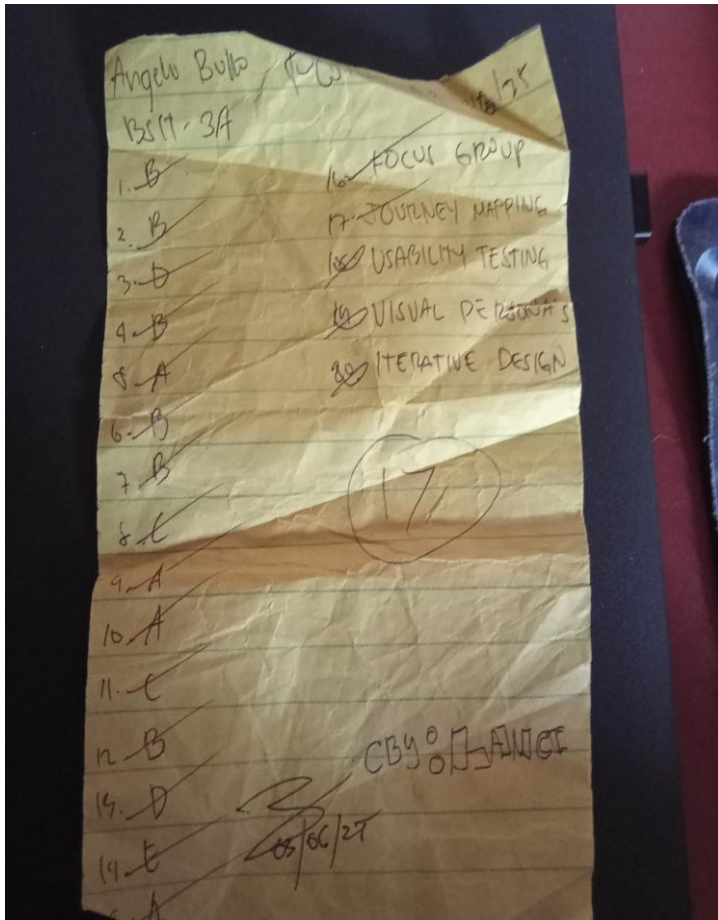 Angelo
BSIT-3A
1. B
2. B
3. D
4. B
5. A
6. B
7. B
8. C
9. A
10. A
11. C
12. B
13. D
14. E
A
16. FOCUS GROUP
17. JOURNEY MAPPING
18. USABILITY TESTING
19. VISUAL PERSONA'S
20. ITERATIVE DESIGN
17
CBY: